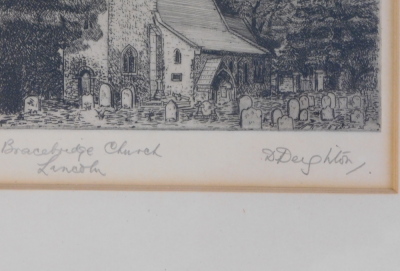 Bracebridge Church
Lincoln
D. Deighton